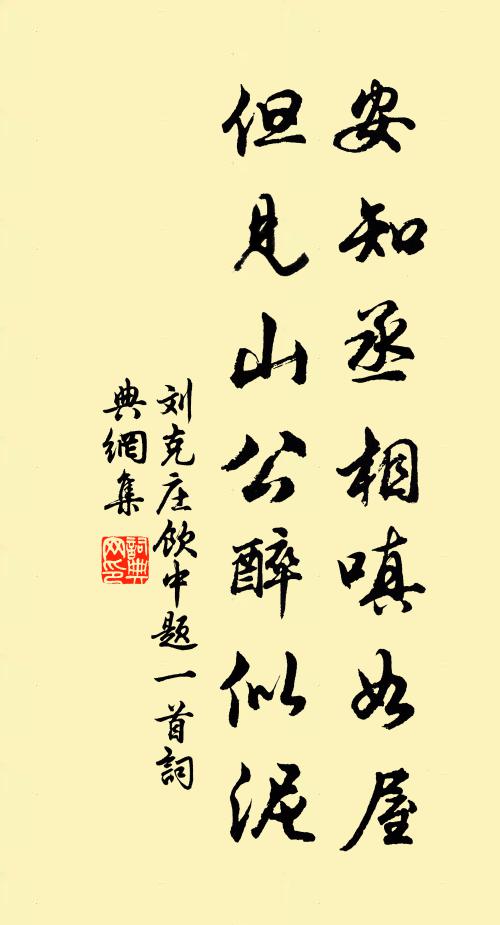 安知丞相嗔如屋
但見山公醉似泥
刘克庄飲中题一首詞
典網集
詞典
网印